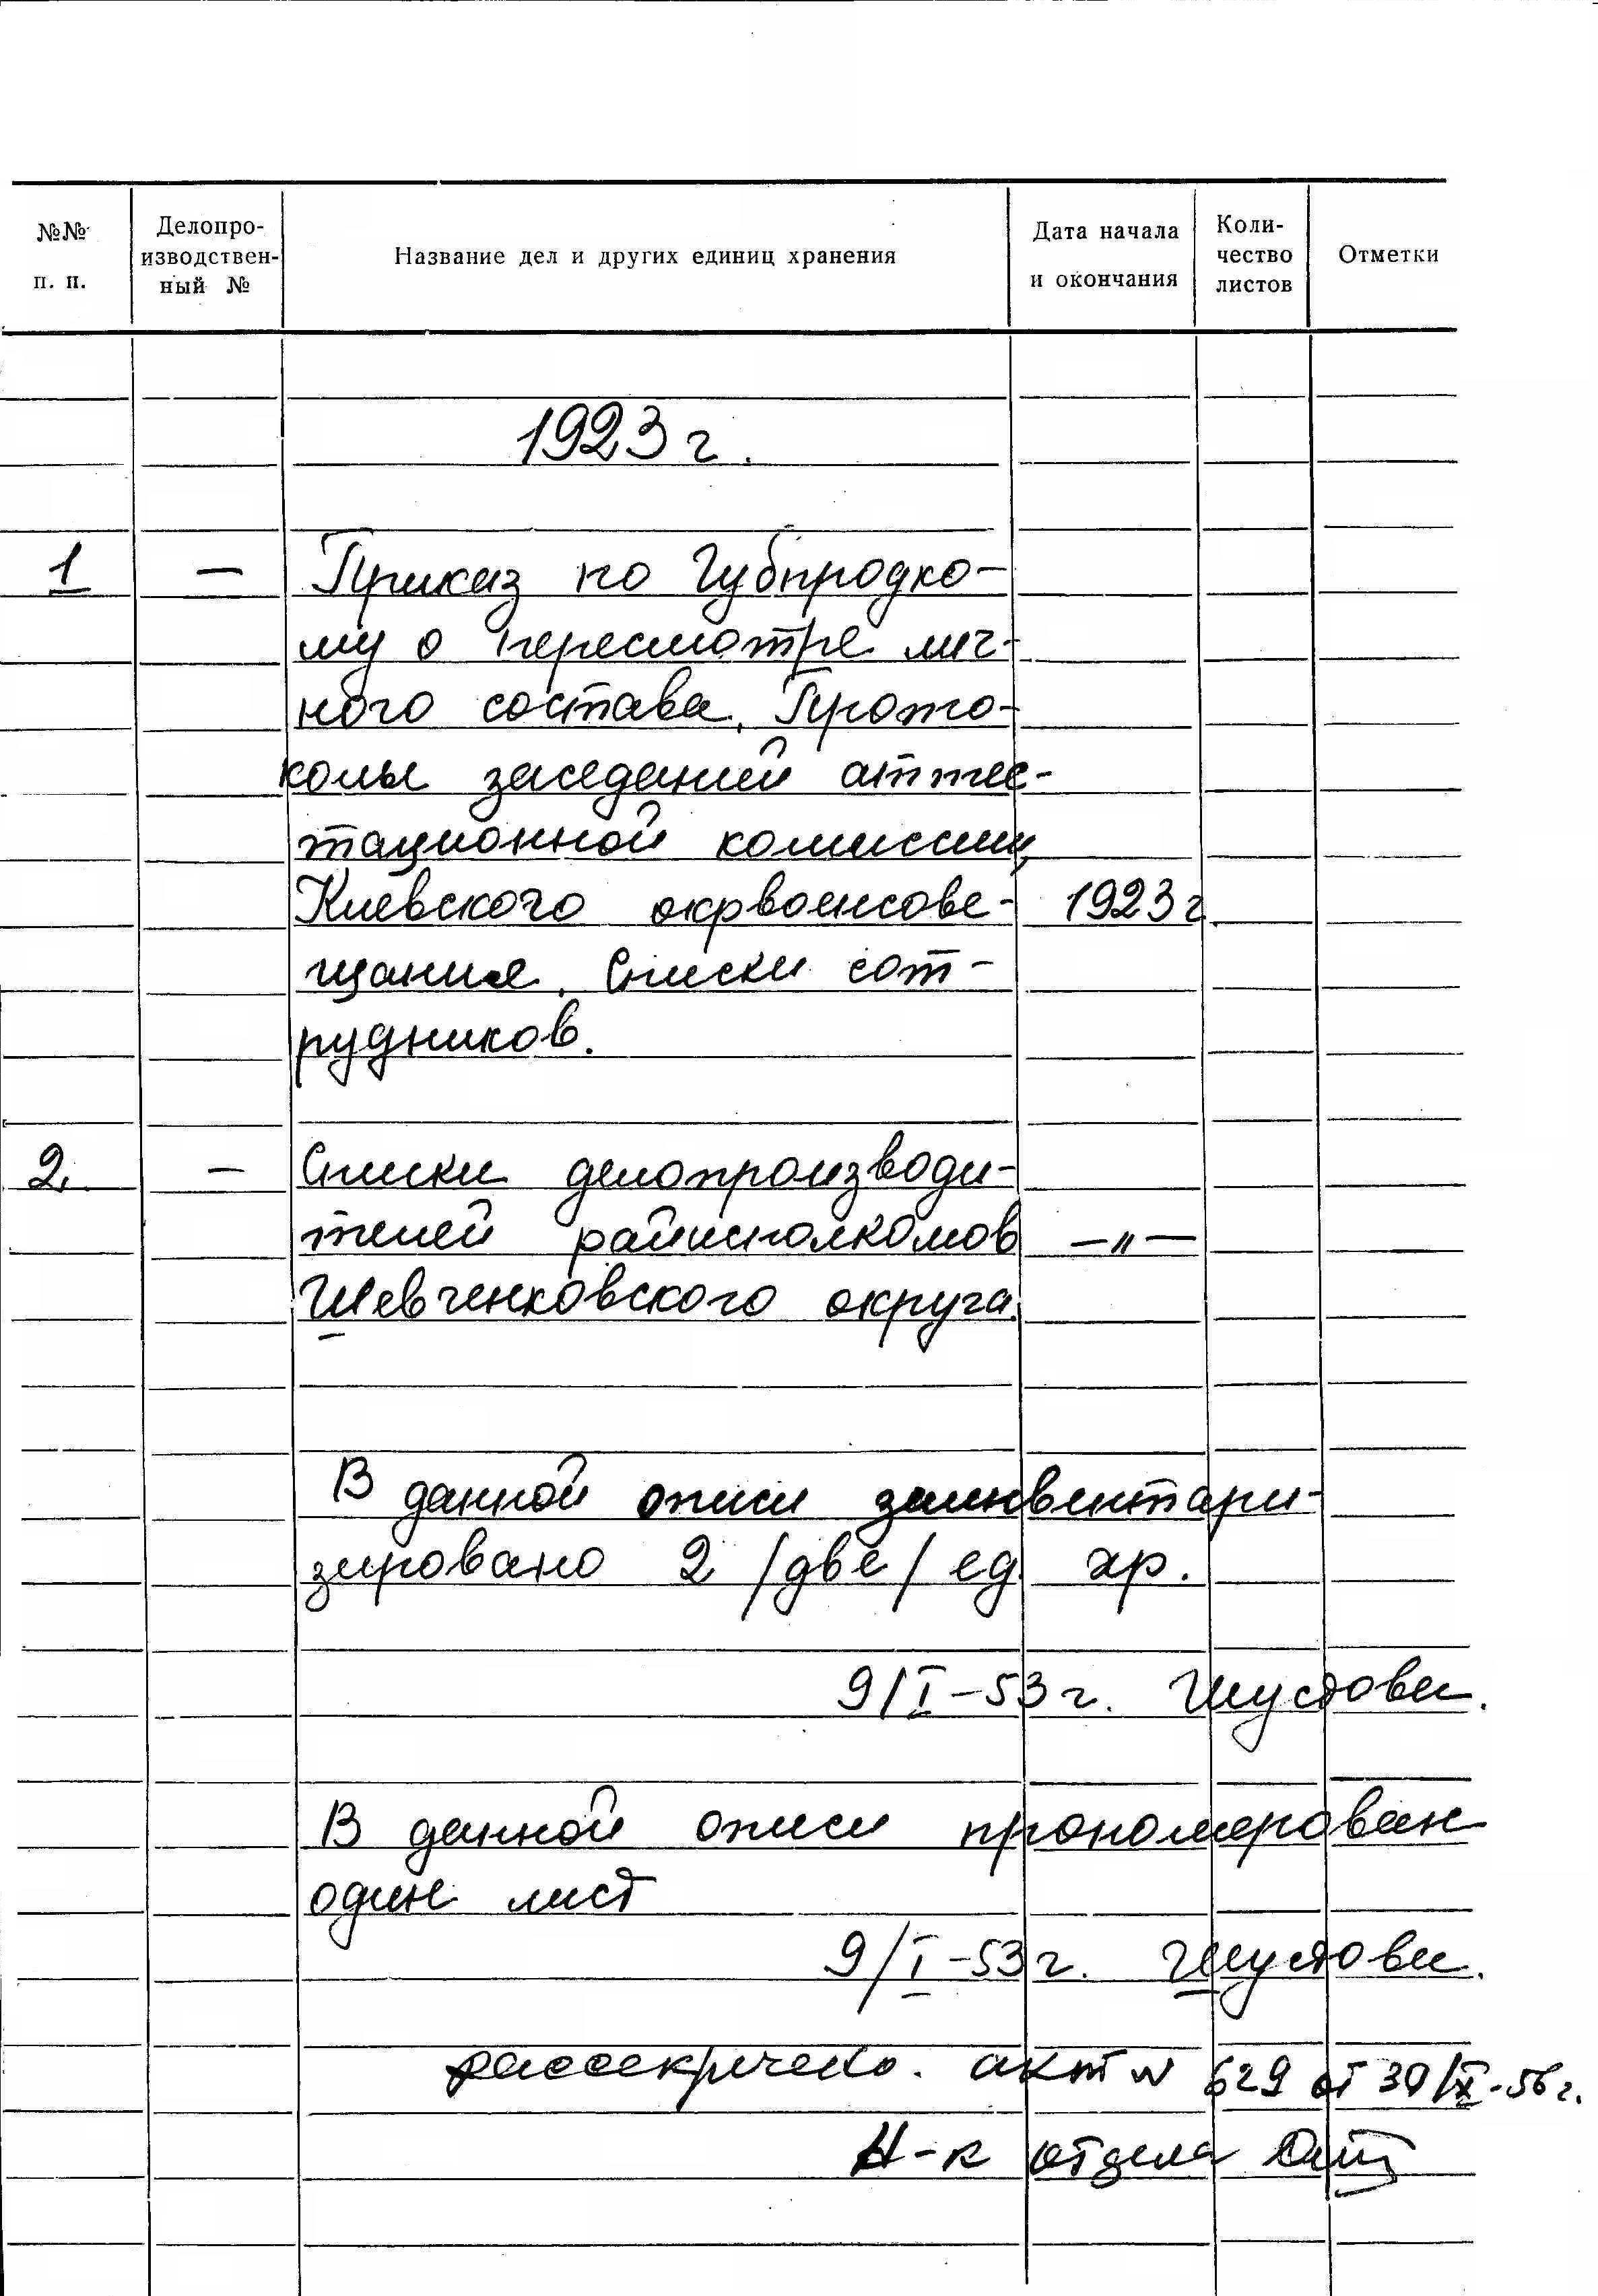 №№ п. п.
Делопро-
изводствен-
ный №
Название дел и других единиц хранения
Дата начала
и окончания
Коли-
чество
листов
Отметки
1923 г.
1 — Приказ по Губпродко-
му о пересмотре лич-
ного состава. Прото-
колы заседаний аттес-
тационной комиссии,
Киевского окрвоенсове- 1923 г.
щания. Списки сот-
рудников.
2. — Списки делопроизводи-
телей райисполкомов —"—
Шевченковского округа.
В данной описи заинвентари-
зировано 2 /две/ ед. хр.
9/I-53 г. Шустова.
В данной описи прономерован
один лист
9/I-53 г. Шустова.
рассекречено. акт N 629 от 30/IX-56 г.
Н-к отдела